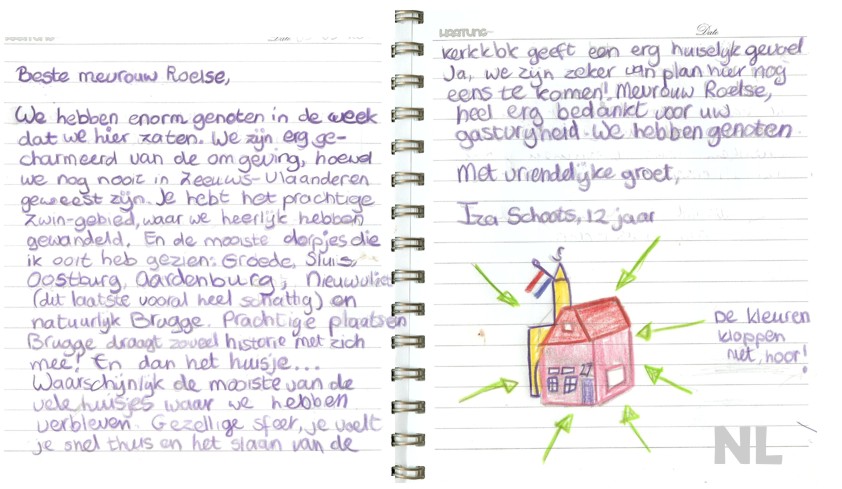 Beste mevrouw Roelse,
We hebben enorm genoten in de week
dat we hier zaten. We zijn erg ge-
charmeerd van de omgeving, hoewel
we nog nooit in Zeeuws-Vlaanderen
geweest zijn. Je hebt het prachtige
Zwin-gebied, waar we heerlijk hebben
gewandeld. En de mooiste dorpjes die
ik ooit heb gezien: Groede, Sluis,
Oostburg, Aardenburg, Nieuwvliet
(dit laatste vooral heel schattig) en
natuurlijk Brugge. Prachtige plaatsen
Brugge draagt zoveel historie met zich
mee! En dan het huisje...
Waarschijnlijk de mooiste van de
vele huisjes waar we hebben
verbleven. Gezellige sfeer, je voelt
je snel thuis en het slaan van de
Date
kerkklok geeft een erg huiselijk gevoel
Ja, we zijn zeker van plan hier nog
eens te komen! Mevrouw Roelse,
heel erg bedankt voor uw
gastvrijheid. We hebben genoten
Met vriendelijke groet,
Iza Schoots, 12 jaar
De kleuren
kloppen
niet, hoor!
NL